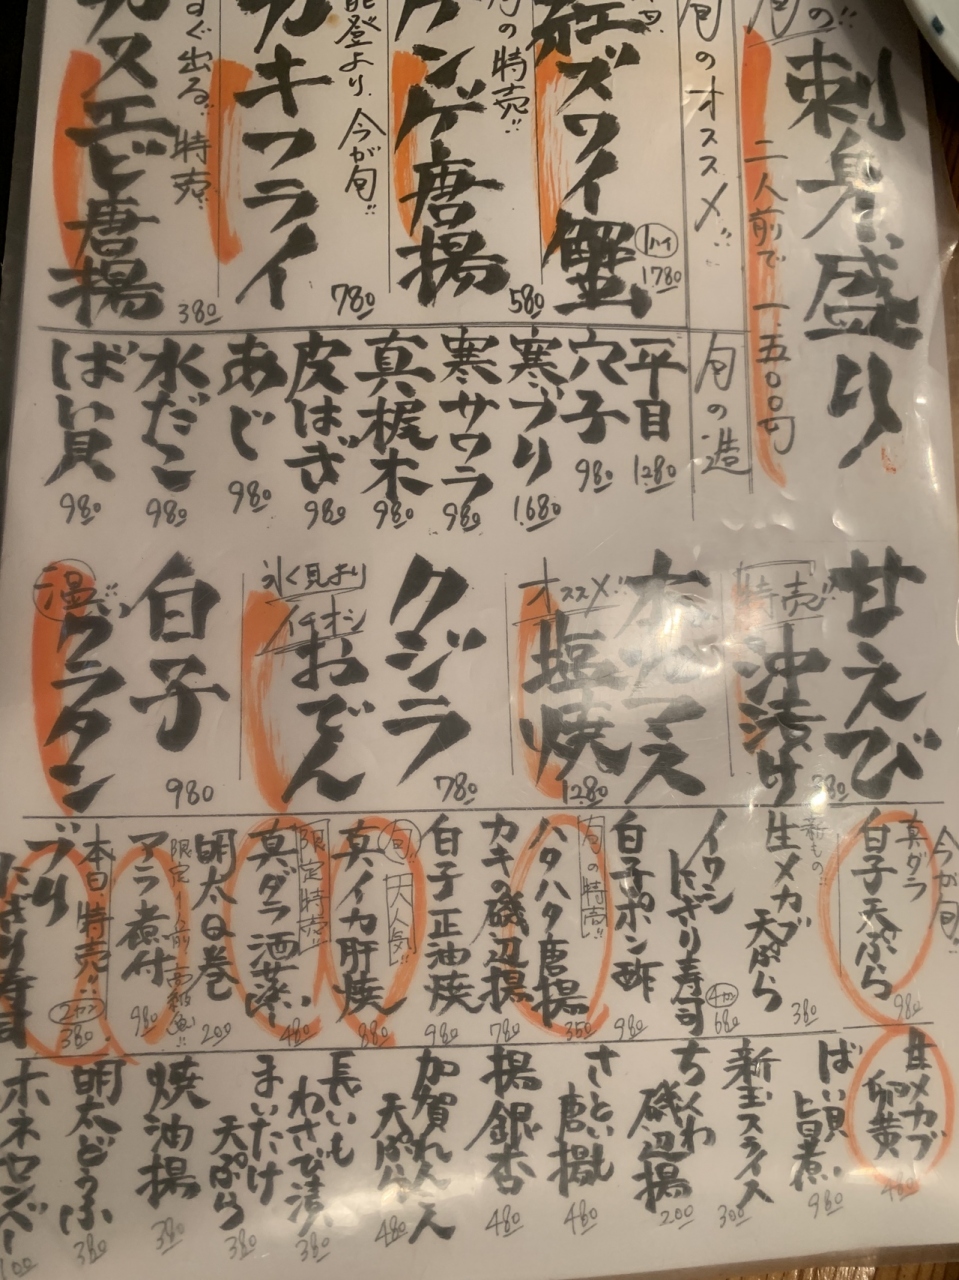 旬の!!
刺身盛り
二人前で 一、五〇〇円
旬のオススメ!!
紅ズワイ蟹
1パイ
1780
旬の特売!!
ゲンゲ唐揚
580
能登より、今が旬!!
カキフライ
780
すぐ出る!! 特売!!
ガスエビ唐揚
380
旬の造
平目
1280
穴子
980
寒ブリ
1,680
寒サワラ
980
真梶木
980
皮はぎ
980
あじ
980
水だこ
980
ばい貝
980
甘えび
特売!!
沖漬け
380
オススメ!!
塩焼
1280
クジラ
780
氷見より
イチオシ
おでん
白子
980
グラタン
今が旬!!
真ダラ
白子天ぷら
980
生メカブ
天ぷら
380
イワシ
にぎり寿司
4カン
680
白子ポン酢
980
旬の特売!!
ハタハタ唐揚
350
カキの磯辺揚
780
白子正油焼
980
旬
大人気!!
真イカ肝焼
880
限定特売!!
真ダラ酒蒸し
480
明太Q巻
200
アラ煮付
980
本日特売!!
ブリ
にぎり寿司
2カン
380
生メカブ
卵黄
480
ばい貝
旨煮
980
新玉スライス
300
ちくわ
磯辺揚
200
さといも
唐揚
480
揚銀杏
480
加賀れんこん
天ぷら
480
長いも
わさび漬
380
まいたけ
天ぷら
380
焼油揚
380
明太どうふ
380
ホネセンベー
100